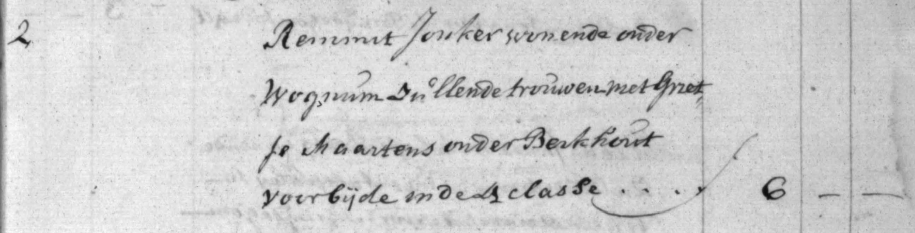 2 Remmit Jonker wonende onder
Wognum Zullende trouwen met Griet-
je Maartens onder Berkhout
voor bijde in de 4 classe . . . . 6 — —